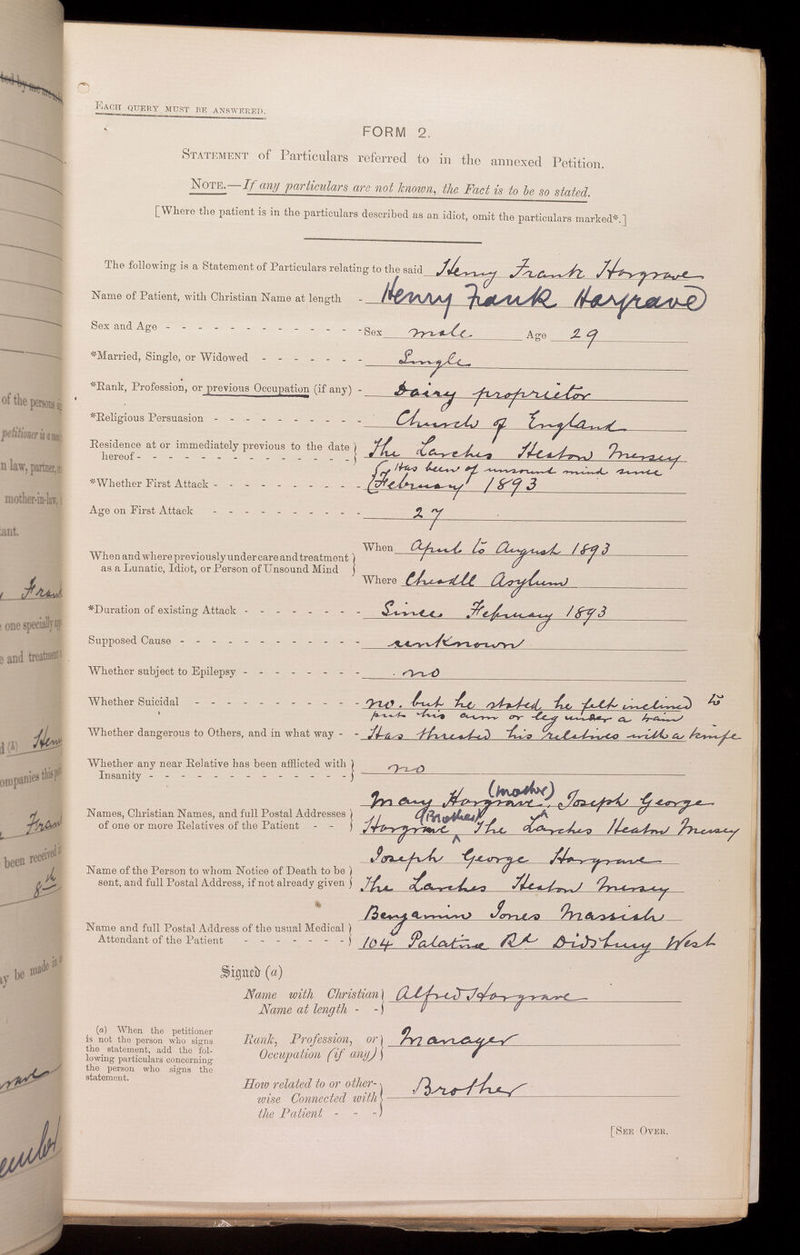 EACH QUERY MUST BE ANSWERED.
FORM 2.
STATEMENT of Particulars referred to in the annexed Petition.
NOTE.—If any particulars are not known, the Fact is to be so stated.
[Where the patient is in the particulars described as an idiot, omit the particulars marked*.]
The following is a Statement of Particulars relating to the said Henry Frank Hargrave
Name of Patient, with Christian Name at length - Henry Frank Hargrave
Sex and Age - - - - - - - - - - - - Sex male Age 29
*Married, Single, or Widowed - - - - - - - Single
*Rank, Profession, or previous Occupation (if any) - Dairy proprietor
*Religious Persuasion - - - - - - - - - - Church of England
Residence at or immediately previous to the date hereof - - - - - - - - - - - - - - The Larches Heaton Mersey
*Whether First Attack - - - - - - - - - - { Has been of unsound mind since
February 1893
Age on First Attack - - - - - - - - - 27
When and where previously under care and treatment as a Lunatic, Idiot, or Person of Unsound Mind } When April to August 1893
Where Cheadle Asylum
*Duration of existing Attack - - - - - - - - Since February 1893
Supposed Cause - - - - - - - - - - - - unknown
Whether subject to Epilepsy - - - - - - - - no
Whether Suicidal - - - - - - - - - - - no. but he stated he felt inclined to
put his arm or leg under a train
Whether dangerous to Others, and in what way - - Has threated his relatives with a knife
Whether any near Relative has been afflicted with Insanity - - - - - - - - - - - - - no
Names, Christian Names, and full Postal Addresses of one or more Relatives of the Patient - - } Mary Hargrave (mother), Joseph George
Hargrave (Brother) The Larches Heaton Mersey
Name of the Person to whom Notice of Death to be sent, and full Postal Address, if not already given } Joseph George Hargrave
The Larches Heaton Mersey
Name and full Postal Address of the usual Medical Attendant of the Patient - - - - - - - } Benjamin Jones Massiah
104 Palatine Rd Didsbury West
Signed (a)
Name with Christian Name at length - - } Alfred Hargrave
(a) When the petitioner is not the person who signs the statement, add the following particulars concerning the person who signs the statement.
Rank, Profession, or Occupation (if any) } Manager
How related to or otherwise Connected with the Patient - - - } Brother
[SEE OVER.